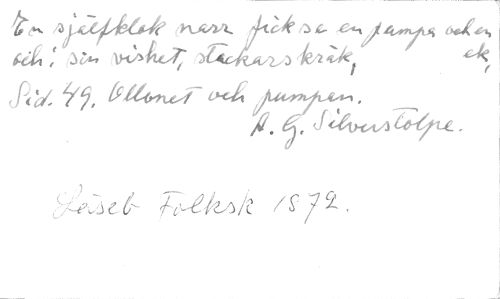 En självklok narr fick se en pumpa och en
och i sin vishet, stackars kräk, ek,
Sid. 49. Ollonet och pumpan.
A. G. Silverstolpe.
Läseb Folksk 1872.